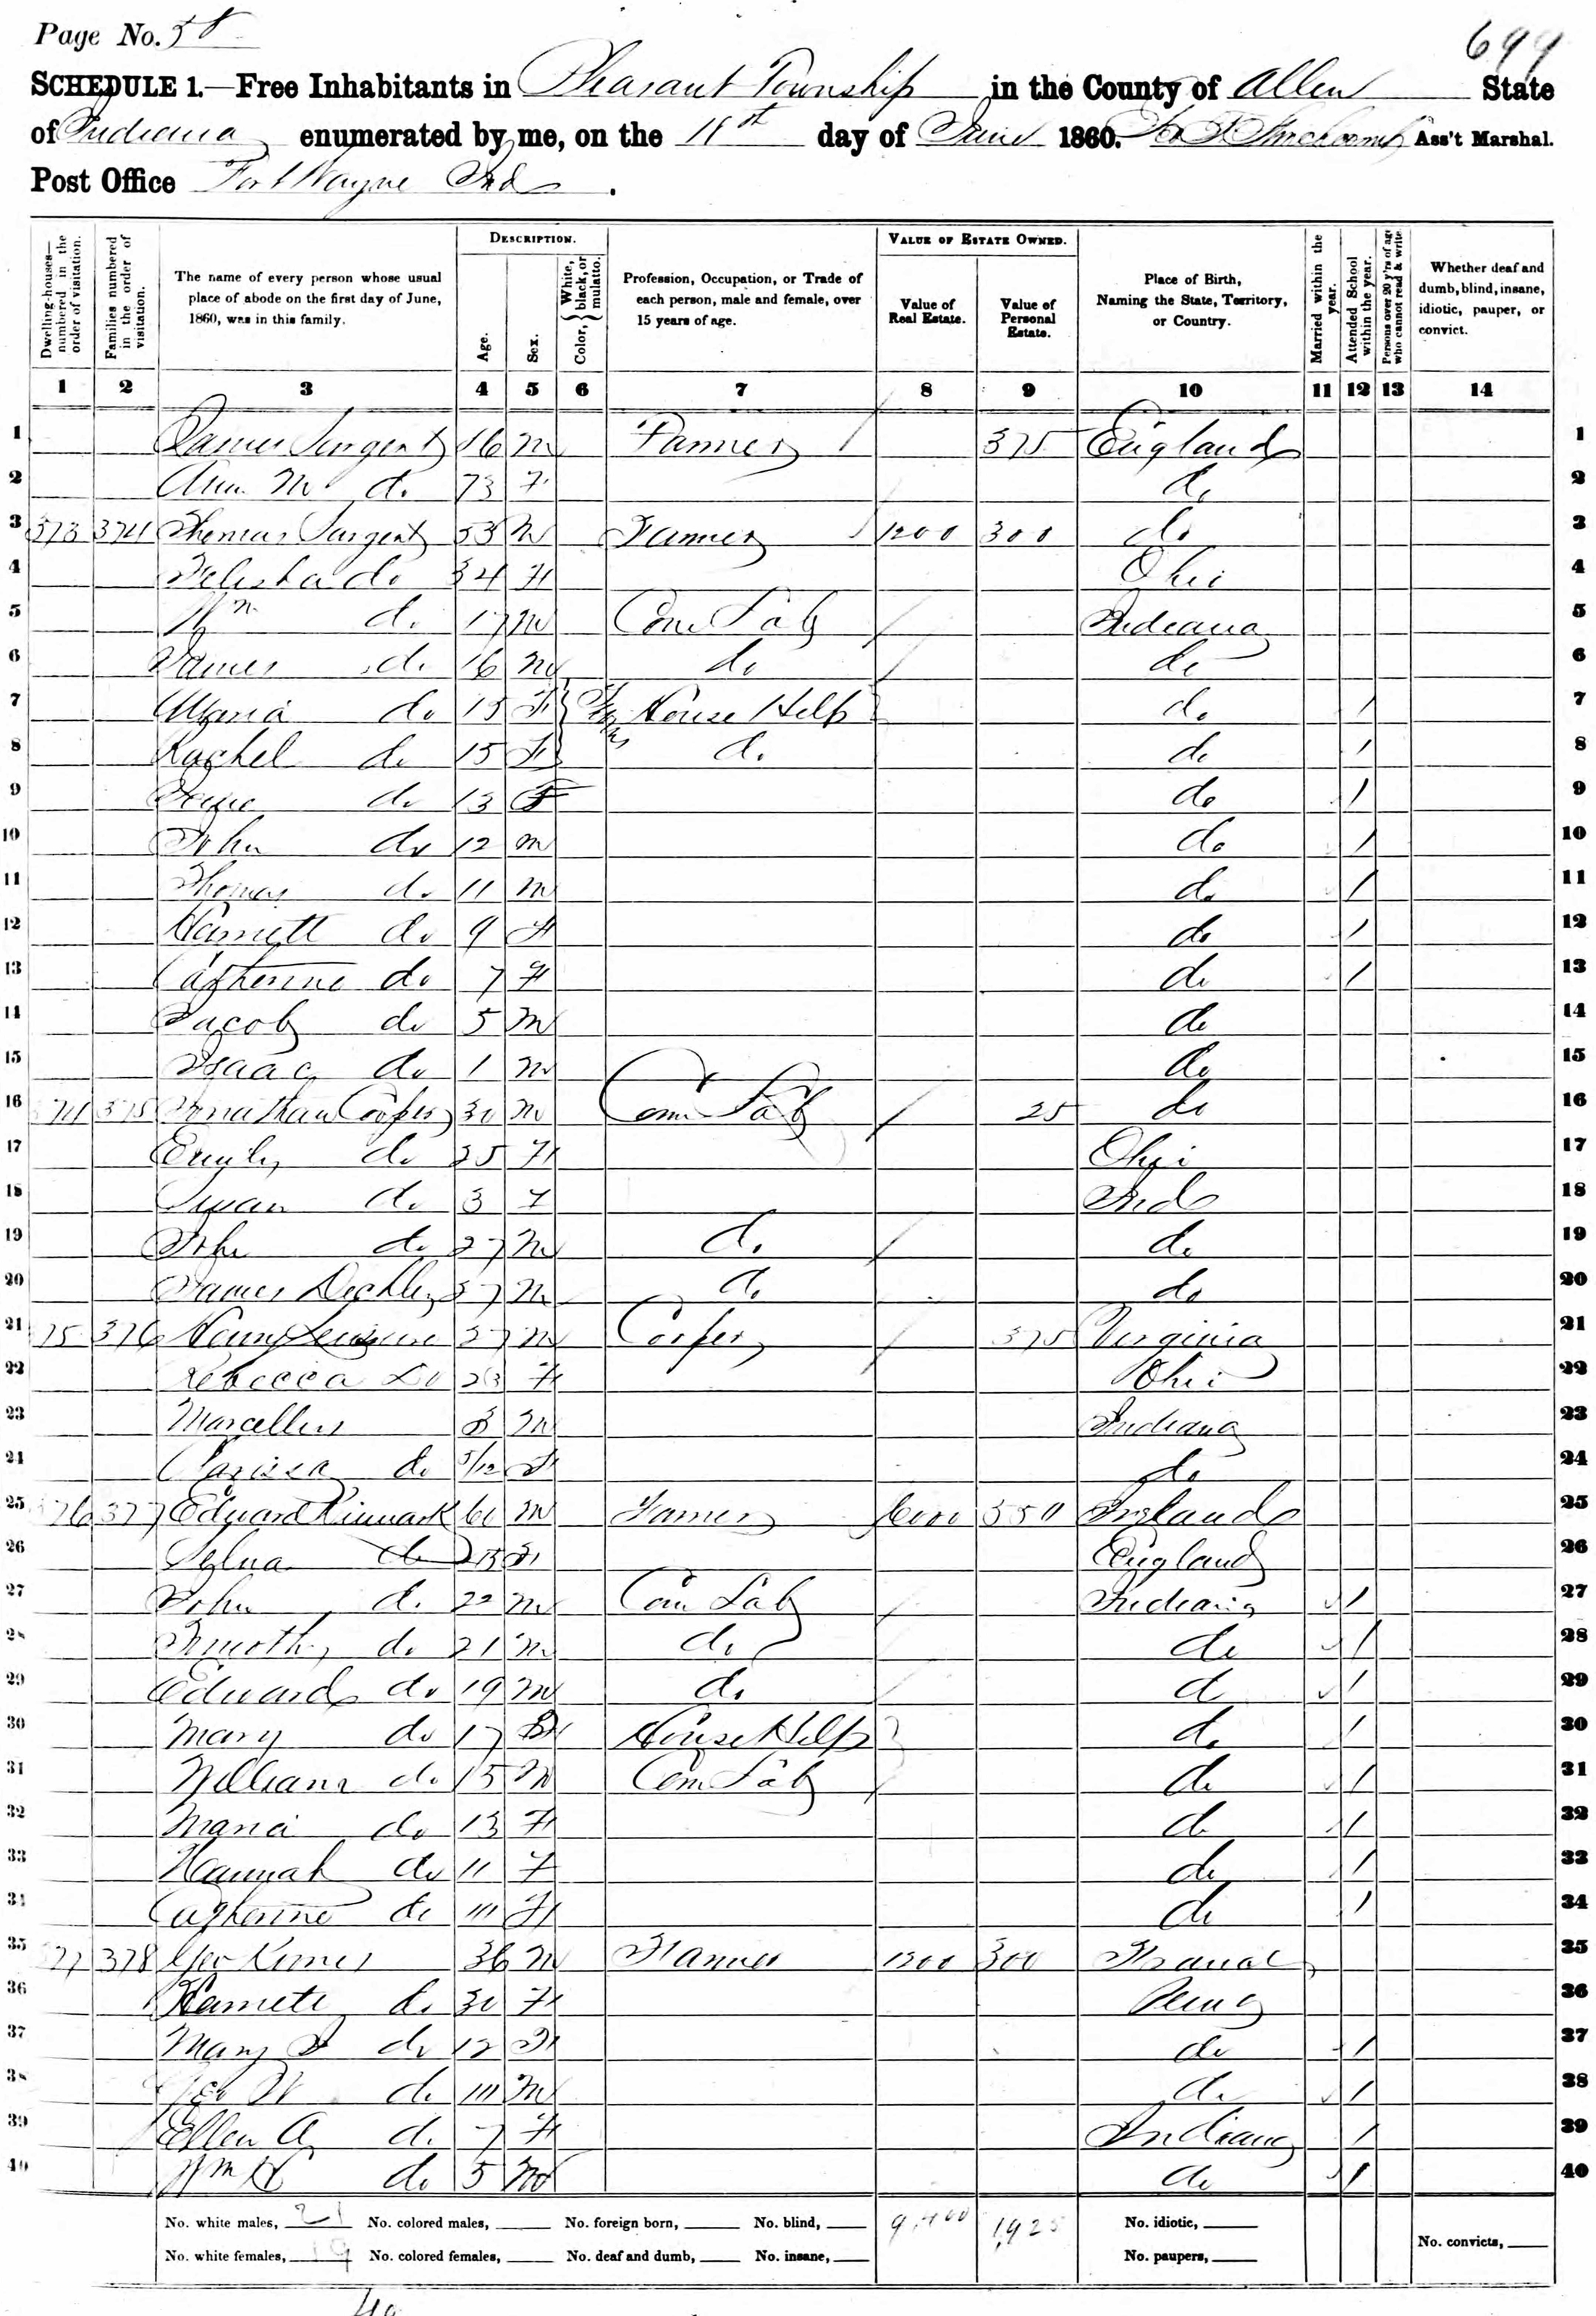 Page No. 58
699
SCHEDULE 1.—Free Inhabitants in Pleasant Township in the County of Allen State
of Indiana enumerated by me, on the 11th day of June 1860. Ass't Marshal.
Post Office Fort Wayne Ind.
Dwelling-houses—numbered in the order of visitation.
Families numbered in the order of visitation.
The name of every person whose usual place of abode on the first day of June, 1860, was in this family.
DESCRIPTION.
Age.
Sex.
Color, { White, black, or mulatto.
Profession, Occupation, or Trade of each person, male and female, over 15 years of age.
VALUE OF ESTATE OWNED.
Value of Real Estate.
Value of Personal Estate.
Place of Birth, Naming the State, Territory, or Country.
Married within the year.
Attended School within the year.
Persons over 20 y'rs of age who cannot read & write.
Whether deaf and dumb, blind, insane, idiotic, pauper, or convict.
1 2 3 4 5 6 7 8 9 10 11 12 13 14
1 James Sergent 16 M Farmer / 375 England 1
2 Ann M do 73 F do 2
3 373 374 Thomas Sargent 53 M Farmer / 1200 300 do 3
4 do 34 F Ohio 4
5 Wm do 17 M Com Lab / Indiana 5
6 James do 16 M do / do 6
7 Maria do 15 F House Help do / 7
8 Rachel do 15 F do do / 8
9 do 13 F do / 9
10 John do 12 M do / 10
11 Thomas do 11 M do / 11
12 Harriett do 9 F do / 12
13 Catherine do 7 F do / 13
14 Jacob do 5 M do 14
15 Isaac do 1 M do 15
16 374 375 Jonathan Cooper 30 M Com Lab / 25 do 16
17 Emily do 25 F Ohio 17
18 Susan do 3 F Ind 18
19 John do 27 M do / do 19
20 James 37 M do / do 20
21 75 376 Henry 27 M Cooper / 375 Virginia 21
22 Rebecca Do 23 F Ohio 22
23 Marcellus 3 M Indiana 23
24 Clarissa do 5/12 F do 24
25 76 377 Edward 60 M Farmer 6000 550 England 25
26 do F England 26
27 John do 22 M Com Lab / Indiana / 27
28 Timothy do 21 M do / do / 28
29 Edward do 19 M do / do / 29
30 Mary do 17 F House Help do / 30
31 William do 15 M Com Lab / do / 31
32 Maria do 13 F do / 32
33 Hannah do 11 F do / 33
34 Catherine do 10 F do / 34
35 77 378 Geo 36 M Farmer 1200 300 35
36 do 30 F Penn 36
37 Mary do 12 F do / 37
38 Geo W do 10 M do / 38
39 Ellen A do 7 F Indiana / 39
40 Wm H do 5 M do / 40
No. white males, 21 No. colored males, No. foreign born, No. blind, 9,400 1,925 No. idiotic,
No. white females, 19 No. colored females, No. deaf and dumb, No. insane, No. paupers, No. convicts,
40